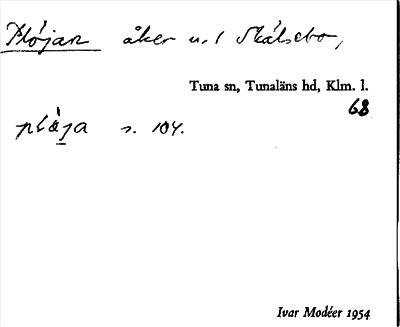 Plójan åker u. / Skälsebo,
Tuna sn, Tunaläns hd, Klm. l.
68
plòja s. 104.
Ivar Modéer 1954